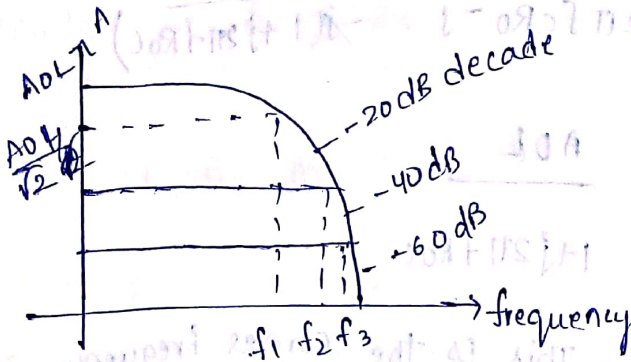 A
AOL
AOL
√2
-20 dB decade
-40 dB
-60 dB
f1 f2 f3
frequency